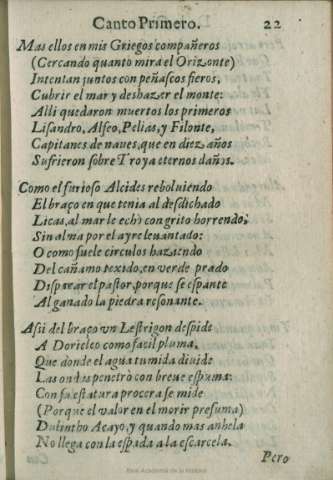 Canto Primero. 22
Mas ellos en mis Griegos compañeros
(Cercando quanto mira el Orizonte)
Intentan juntos con peñascos fieros,
Cubrir el mar y deshazer el monte:
Alli quedaron muertos los primeros
Lisandro, Alfeo, Pelias, y Filonte,
Capitanes de naues, que en diez años
Sufrieron sobre Troya eternos daños.
Como el furioso Alcides reboluiendo
El braço en que tenia al desdichado
Licas, al mar le echò con grito horrendo,
Sin alma por el ayre leuantado:
O como suele circulos haziendo
Del cañamo texido, en verde prado
Disparar el pastor, porque se espante
Al ganado la piedra resonante.
Assi del braço vn Lestrigon despide
A Doricleo como facil pluma,
Que donde el agua tumida diuide
Las ondas penetrò con breue espuma:
Con su estatura procera se mide
(Porque el valor en el morir presuma)
Dulintho Acayo, y quando mas anhela
No llega con la espada a la escarcela.
Pero
Real Academia de la Historia